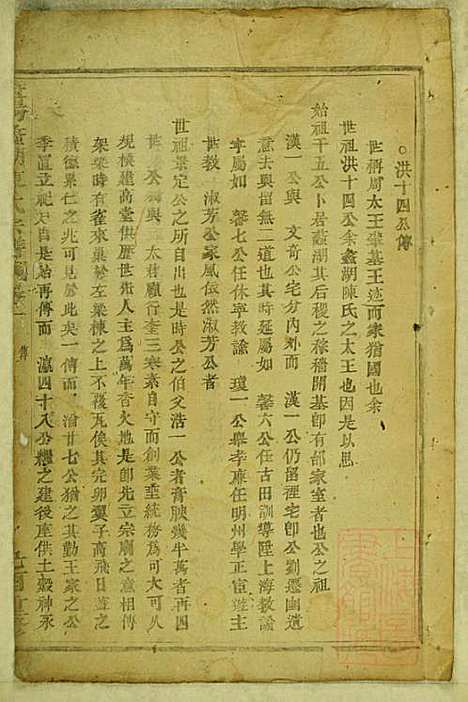 ○洪十四公傳
世稱周太王肇基王迹而家猶國也余
世祖洪十四公余蠡湖陳氏之太王也因是以思
始祖干五公卜居蠡湖其后稷之稼穡開基卽有邰家室者也公之祖
漢一公與　文奇公宅分內外而　漢一公仍留裡宅卽公劉遷豳遺
意去與留無二道也其時延屬如　馨六公任古田訓導陞上海教諭
寧屬如　馨七公任休寧教諭　瓊一公舉孝廉任明州學正宦遊主
世教　淑芳公家風依然淑芳公者
世祖景定公之所自出也是時公之伯父浩一公者膏腴幾半萬者再四
世　公獨與　太君顧行奎三寒素自守而創業垂統務為可大可久
規模建高堂供歷世術人主為萬年香火地是卽先立宗廟之意相傳
架梁時有雀來巢於左梁棟之上不復瓦俟其完卵翼子高飛日蓋之
積德累仁之兆可見於此矣一傳而　淯廿七公猶之其勤王家之公
季直立祀天自是始再傳而　瀛四十八公糧之建後座供土穀神承